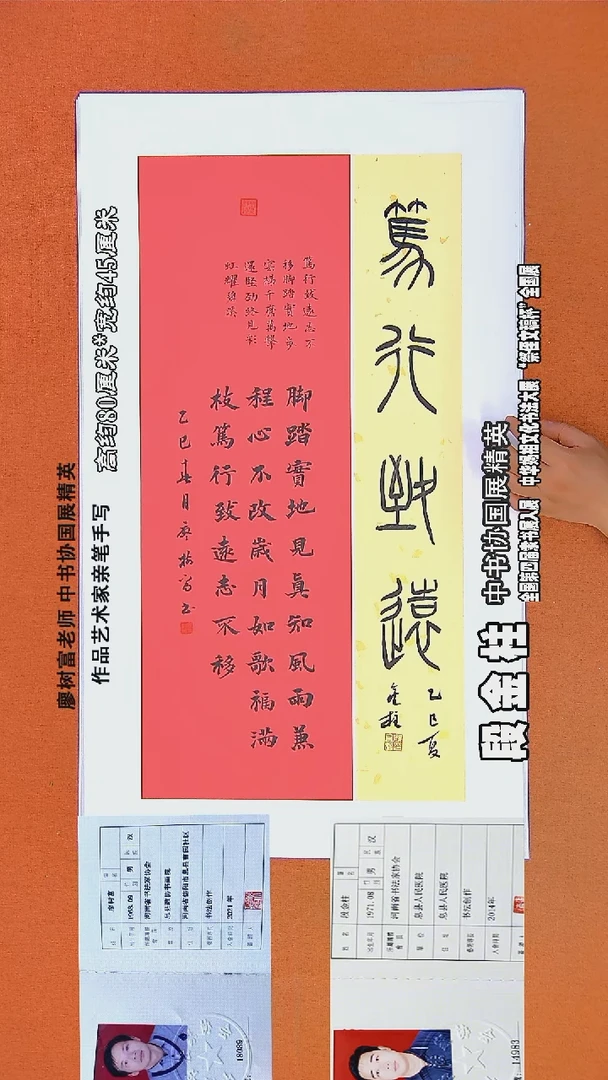 篤行致遠
乙巳夏
金柱
篤行致遠志不
移脚踏實地步
雲梯千磨萬擊
還堅劲終見彩
虹耀
脚踏實地見眞知風雨兼
程心不改歲月如歌福滿
枝篤行致遠志不移
乙巳春月廖樹富書
廖树富老师 中书协国展精英
作品艺术家亲笔手写 高约80厘米*宽约45厘米
段金柱 中书协国展精英
全国第四届隶书展入展 中华妈祖文化书法大展 “祭侄文稿杯”全国展
廖树富
男 汉
河南省书法家协会
书法创作
2021年
18089
姓名 段金柱
1971.08 男 汉
河南省书法家协会
息县人民医院
息县人民医院
书法创作
2014年
14983